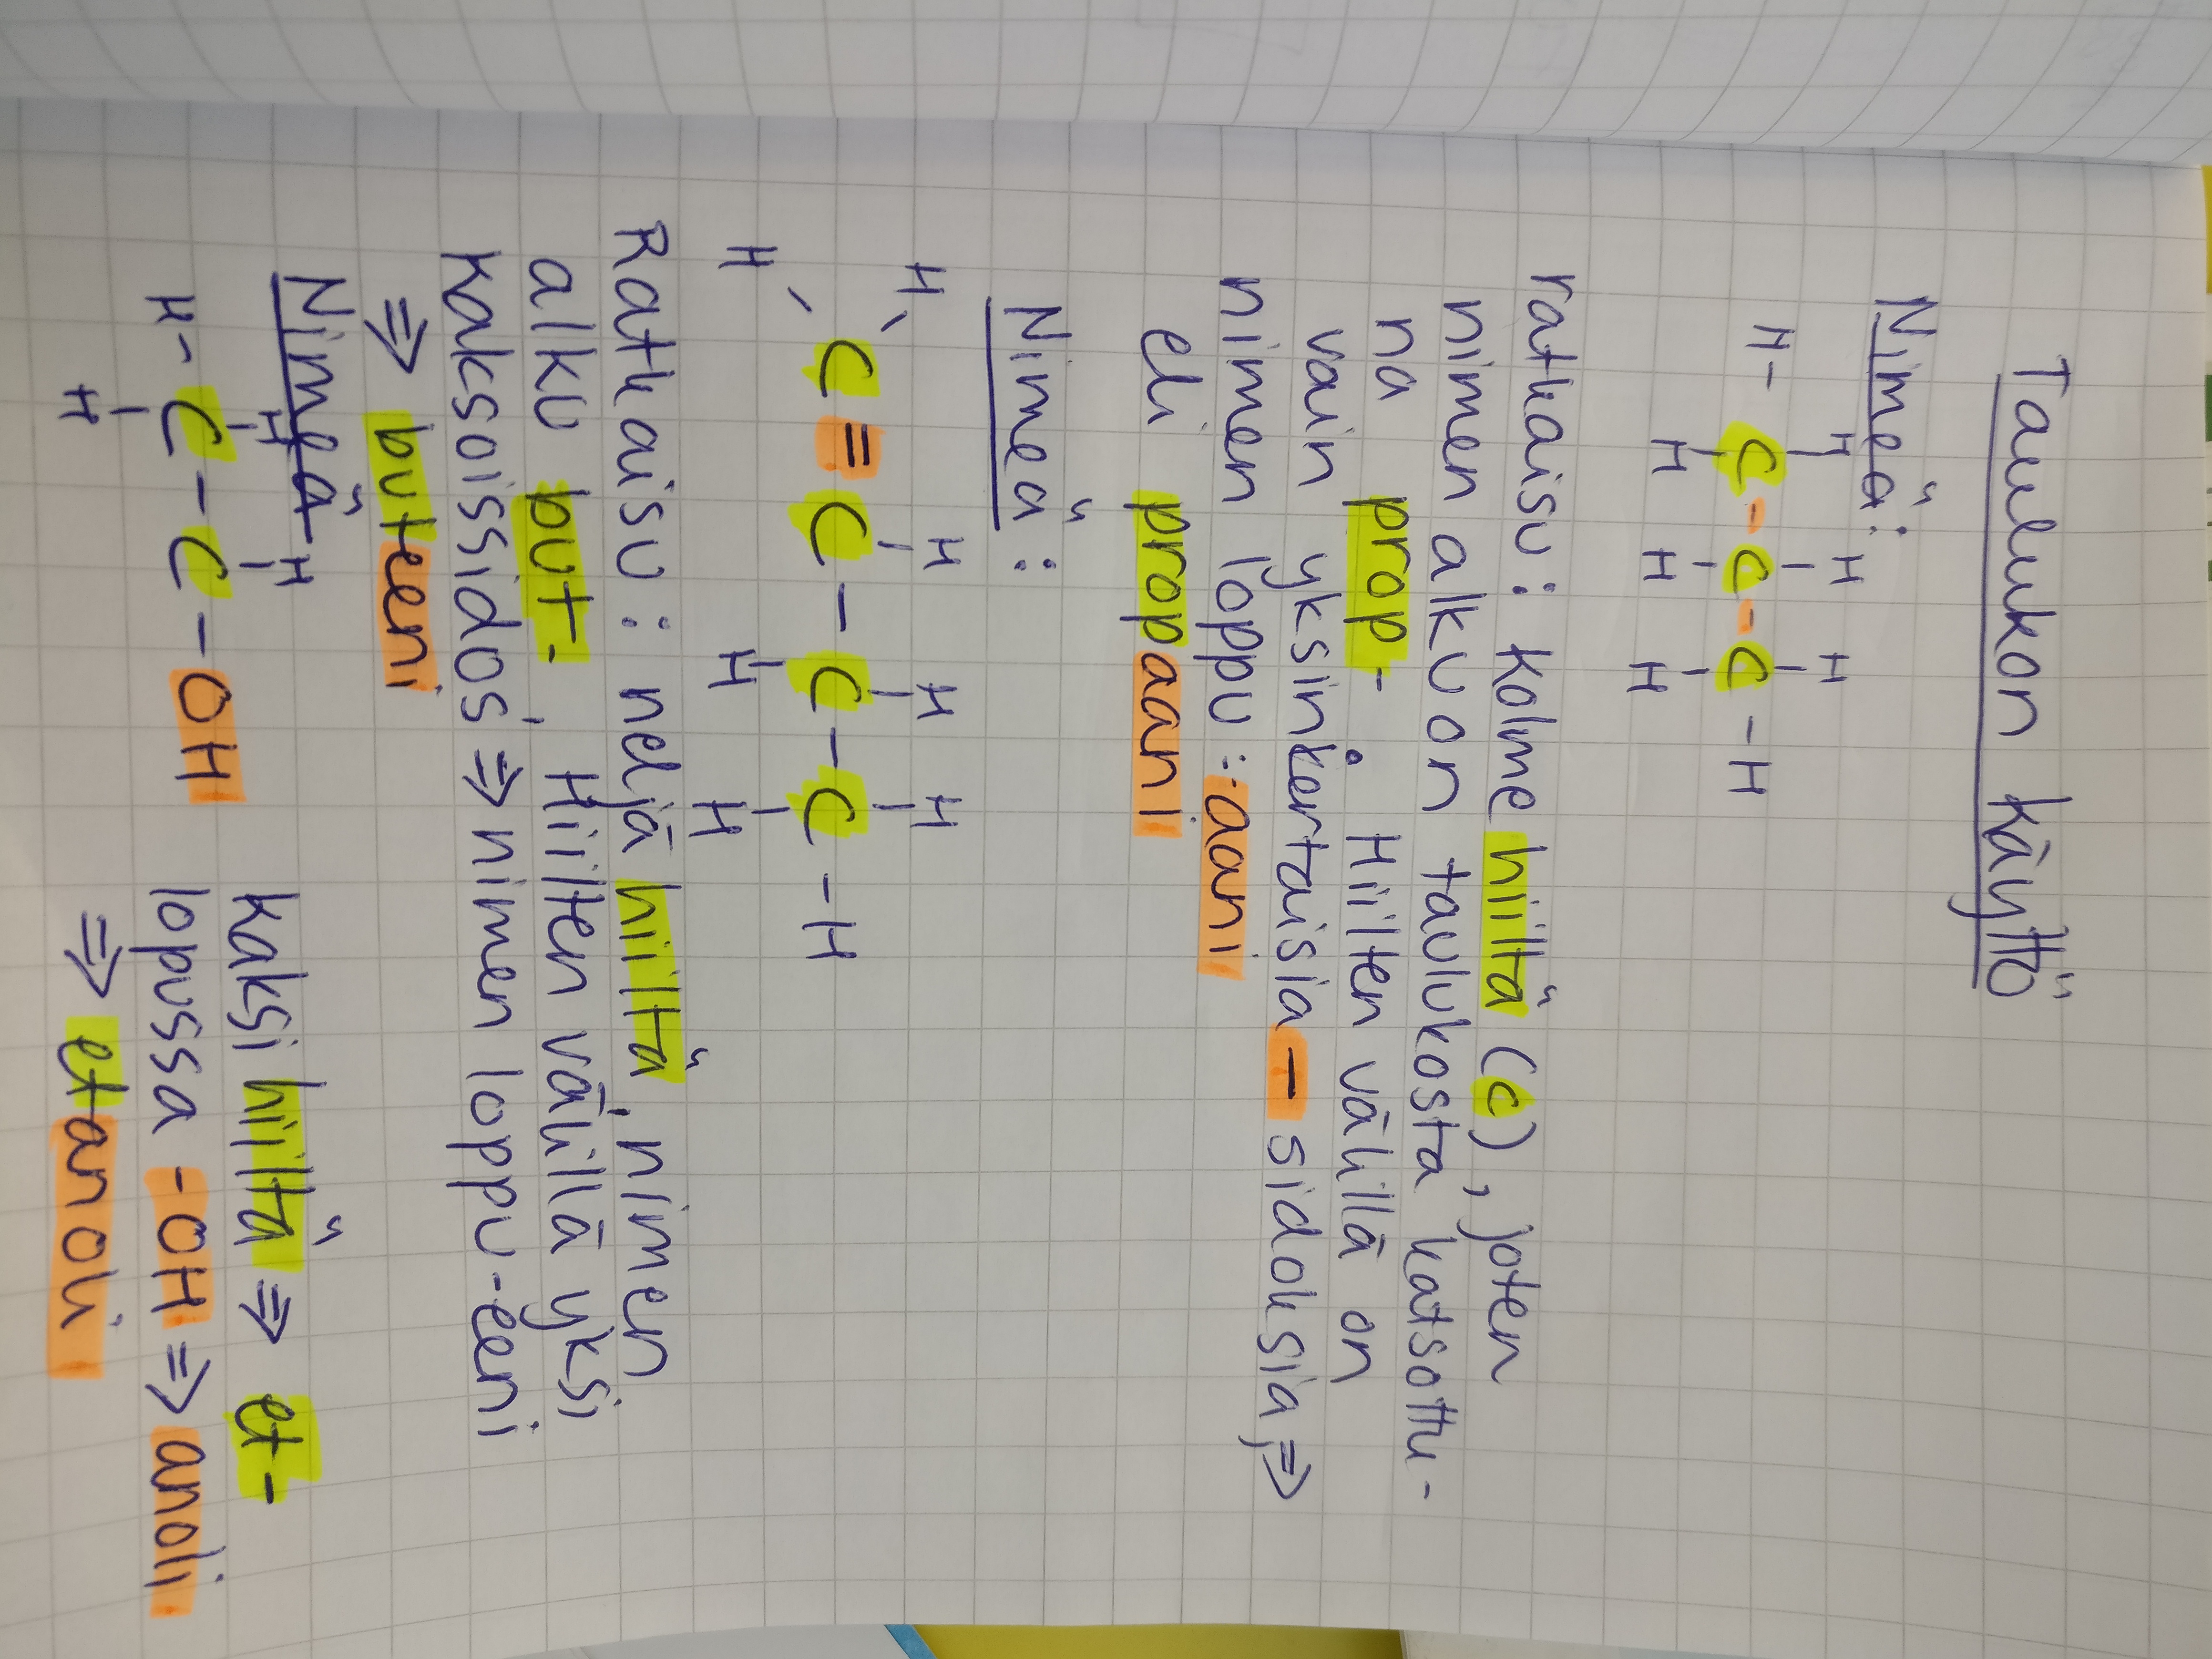 Taulukon käyttö
Nimeä:
H H H
H-C-C-C-H
H H H
ratkaisu: Kolme hiiltä (C), joten
nimen alku on taulukosta katsottu-
na prop-. Hiilten välillä on
vain yksinkertaisia - sidoksia, ⇒
nimen loppu: -aani
eli propaani
Nimeä:
H H H H
C=C-C-C-H
H H H
Ratkaisu: neljä hiiltä, nimen
alku but-. Hiilten välillä yksi
kaksoissidos ⇒ nimen loppu -eeni
⇒ buteeni
Nimeä
H H
H-C-C-OH
H
kaksi hiiltä ⇒ et-
lopussa -OH ⇒ anoli
⇒ etanoli